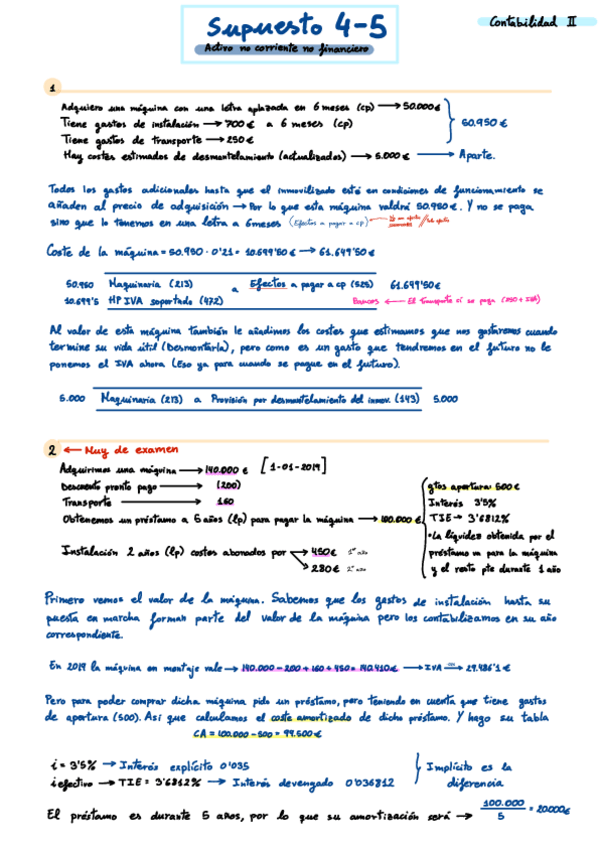 Supuesto 4-5
Contabilidad II
Activo no corriente no financiero
1
Adquiero una máquina con una letra aplazada en 6 meses (cp) → 50.000€
Tiene gastos de instalación → 700€ a 6 meses (cp)
50.950€
Tiene gastos de transporte → 250€
Hay costes estimados de desmantelamiento (actualizados) → 5.000€ → Aparte.
Todos los gastos adicionales hasta que el inmovilizado esté en condiciones de funcionamiento se
añaden al precio de adquisición → Por lo que esta máquina valdrá 50.950€. Y no se paga
sino que lo tenemos en una letra a 6meses (Efectos a pagar a cp) ←
Coste de la máquina = 50.950 · 0'21 = 10.699'50€ → 61.649'50€
50.950 Maquinaria (213) a Efectos a pagar a cp (525) 61.649'50€
10.699'5 HP IVA soportado (472) Bancos ← El transporte sí se paga (250 + IVA)
Al valor de esta máquina también le añadimos los costes que estimamos que nos gastaremos cuando
termine su vida útil (Desmontarla), pero como es un gasto que tendremos en el futuro no le
ponemos el IVA ahora (Eso ya para cuando se pague en el futuro).
5.000 Maquinaria (213) a Provisión por desmantelamiento del inmov. (143) 5.000
2 ← Muy de examen
Adquirimos una máquina → 140.000€ [1-01-2019]
Descuento pronto pago → (200)
Transporte → 160
Obtenemos un préstamo a 5 años (lp) para pagar la máquina → 100.000€
Instalación 2 años (lp) costes abonados por → 450€ 1º año
→ 280€ 2º año
gtos apertura: 500€
Interés 3'5%
TIE → 3'6812%
• La liquidez obtenida por el
préstamo va para la máquina
y el resto pte durante 1 año
Primero vemos el valor de la máquina. Sabemos que los gastos de instalación hasta su
puesta en marcha forman parte del valor de la máquina pero los contabilizamos en su año
correspondiente.
En 2019 la máquina en montaje vale → 140.000 - 200 + 160 + 450 = 140.410€ → IVA → 29.486'1€
Pero para poder comprar dicha máquina pido un préstamo, pero teniendo en cuenta que tiene gastos
de apertura (500). Así que calculamos el coste amortizado de dicho préstamo. Y hago su tabla
CA = 100.000 - 500 = 99.500€
i = 3'5% → Interés explícito 0'035
i efectivo → TIE = 3'6812% → Interés devengado 0'036812
Implícito es la
diferencia
El préstamo es durante 5 años, por lo que su amortización será → 100.000 / 5 = 20.000€